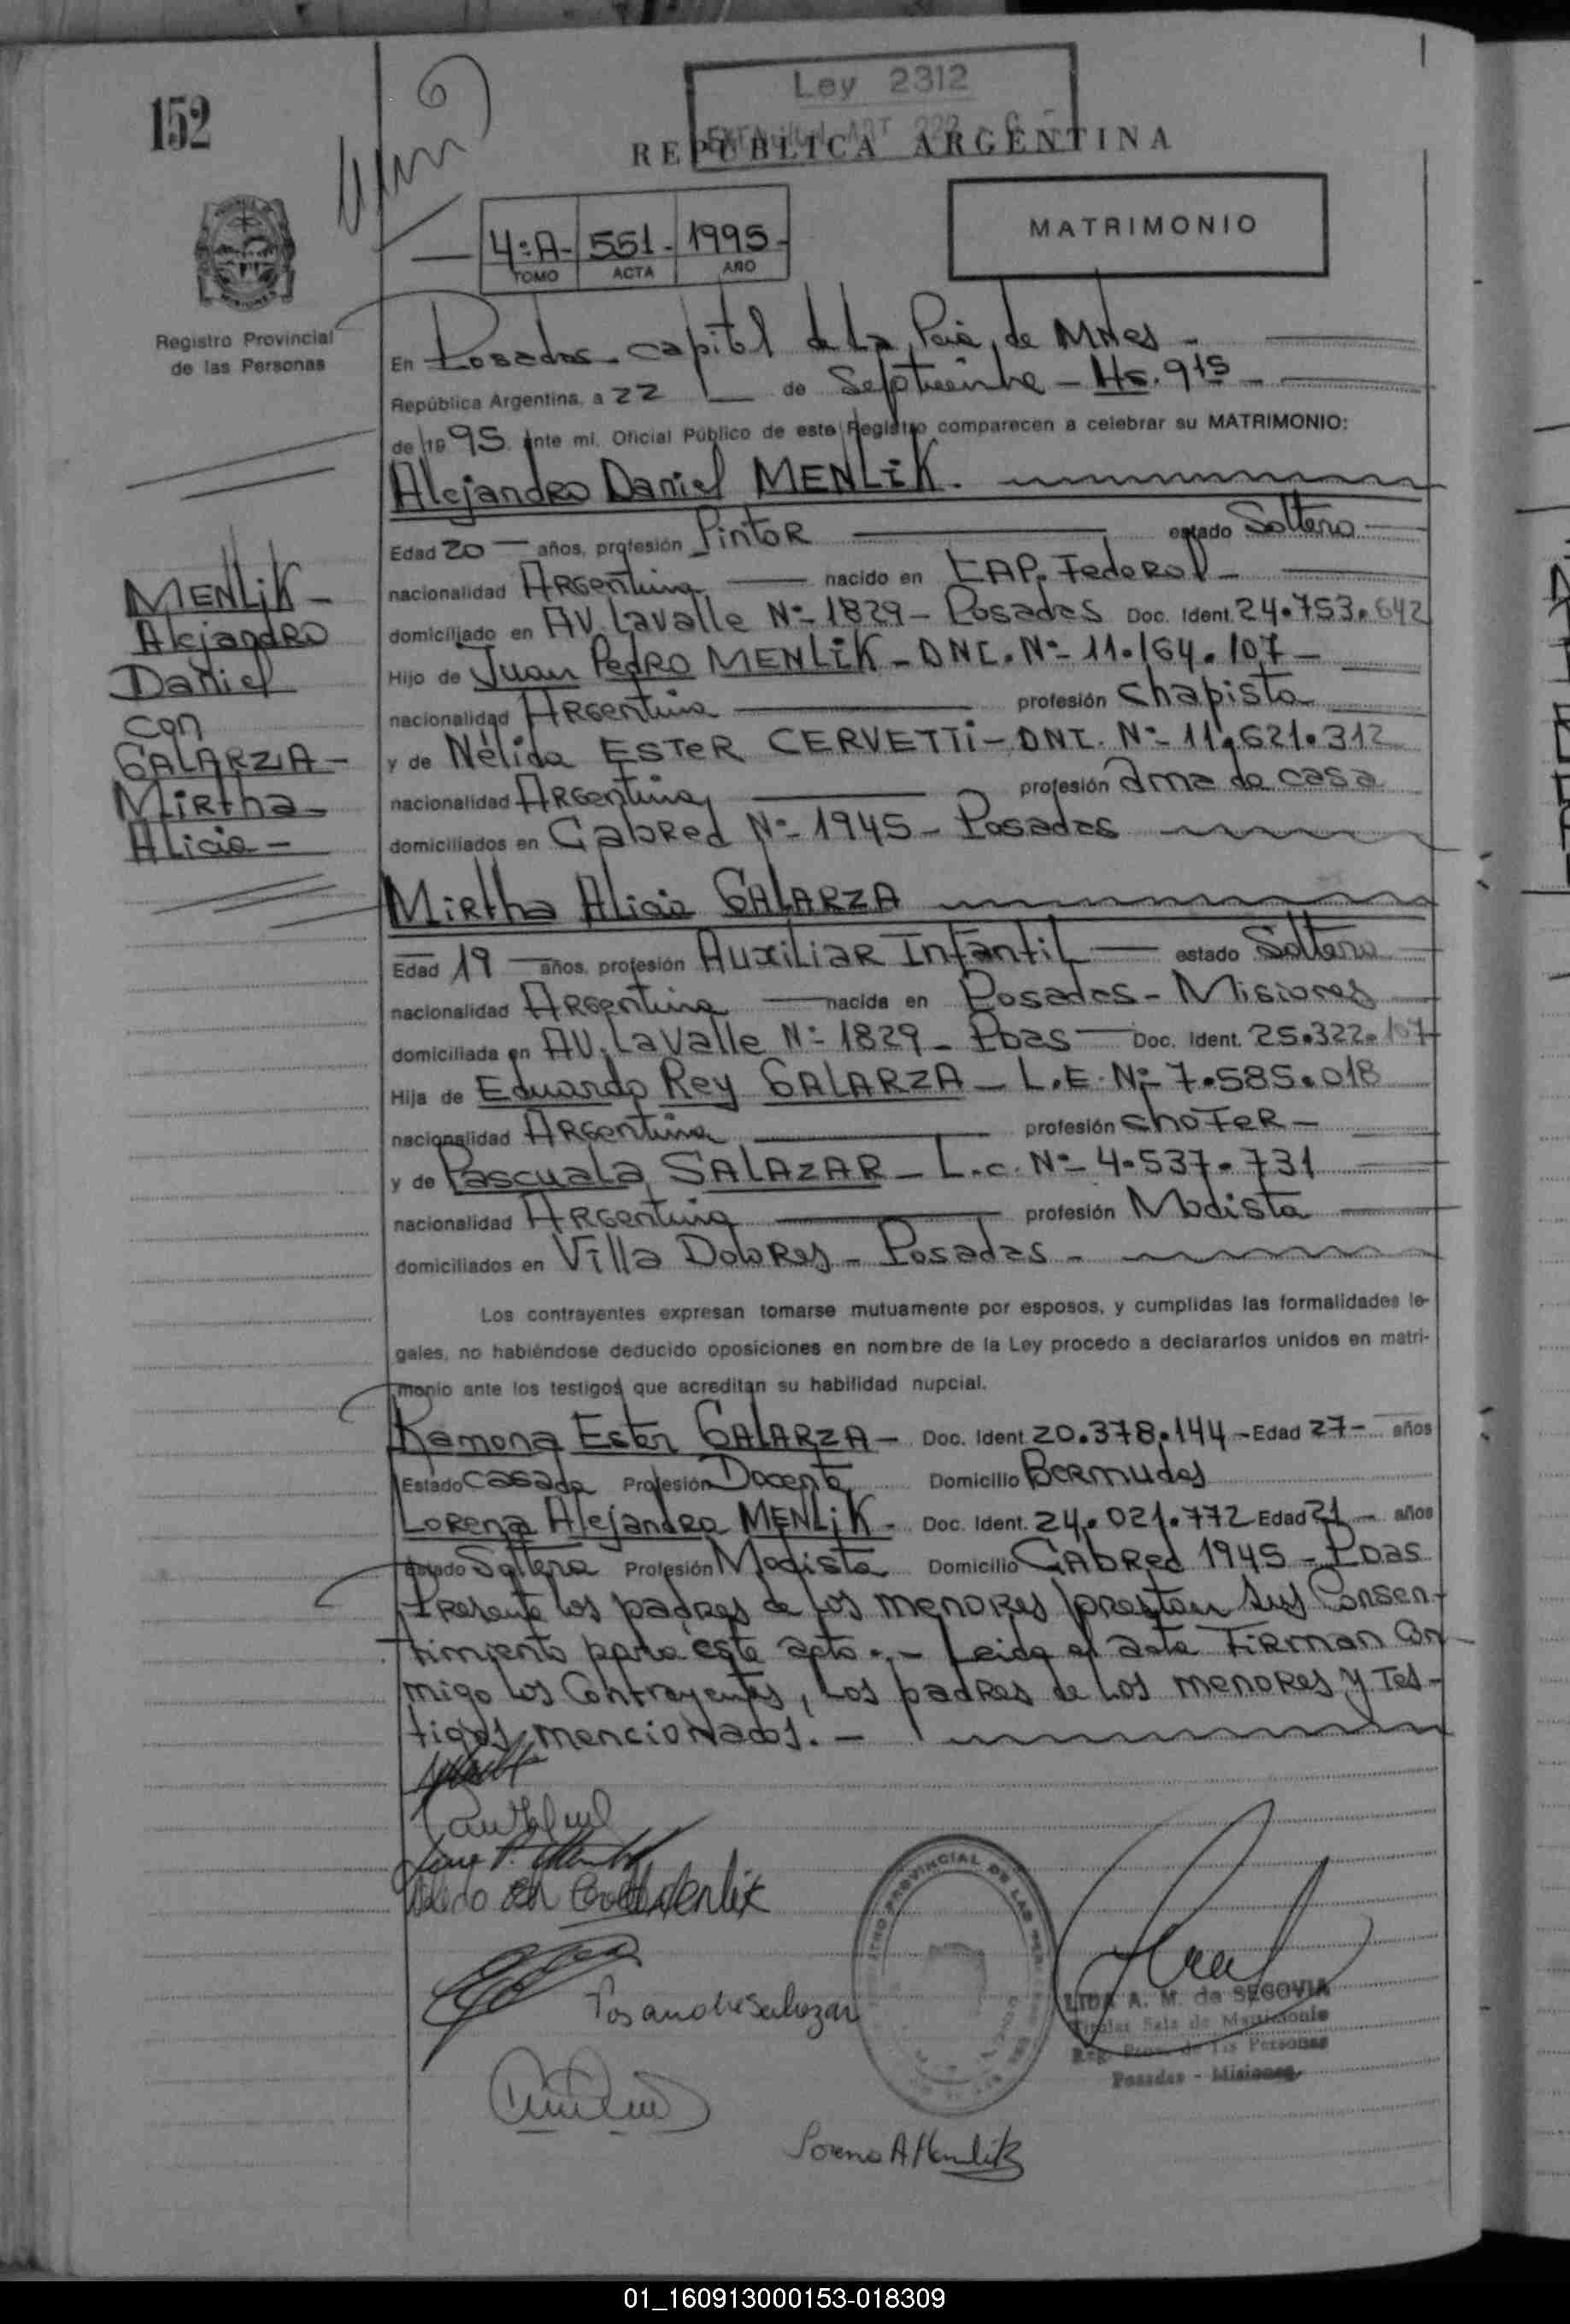 152
Ley 2312
REPUBLICA ARGENTINA
4ºA- 551- 1995-
TOMO ACTA AÑO
MATRIMONIO
Registro Provincial
de las Personas
En Posadas, capital de la Pcia, de Mnes -
República Argentina, a 22 de Septiembre - Hs. 9 15 -
de 19 95. ante mí, Oficial Público de este Registro comparecen a celebrar su MATRIMONIO:
Alejandro Daniel MENLIK.
Edad 20 - años, profesión Pintor estado Soltero
nacionalidad Argentina nacido en CAP. Federal -
domiciliado en AV. Lavalle Nº- 1829 - Posadas Doc. Ident. 24.753.642
Hijo de Juan Pedro MENLIK - DNI. Nº- 11.164.107 -
nacionalidad Argentina profesión Chapista
y de Nélida ESTER CERVETTI - DNI. Nº- 11.621.312
nacionalidad Argentina profesión ama de casa
domiciliados en Cabred Nº- 1945 - Posadas
MENLIK -
Alejandro
Daniel
con
GALARZA -
Mirtha
Alicia -
Mirtha Alicia GALARZA
Edad 19 - años, profesión Auxiliar Infantil - estado Soltera
nacionalidad Argentina nacida en Posadas - Misiones
domiciliada en AV. Lavalle Nº- 1829 - Pdas - Doc. Ident. 25.322.107
Hija de Eduardo Rey GALARZA - L.E. Nº- 7.585.018
nacionalidad Argentina profesión chofer -
y de Pascuala SALAZAR - L.c. Nº- 4.537.731
nacionalidad Argentina profesión Modista
domiciliados en Villa Dolores - Posadas -
Los contrayentes expresan tomarse mutuamente por esposos, y cumplidas las formalidades le-
gales, no habiéndose deducido oposiciones en nombre de la Ley procedo a declararlos unidos en matri-
monio ante los testigos que acreditan su habilidad nupcial.
Ramona Ester GALARZA - Doc. Ident. 20.378.144 - Edad 27 - años
Estado casada Profesión Docente Domicilio Bermudes
Lorena Alejandra MENLIK - Doc. Ident. 24.021.772 Edad 21 - años
Estado Soltera Profesión Modista Domicilio CABRed 1945 - Pdas
Presente los padres de los menores prestan sus Consen-
timiento para este acto.- Leida el acta Firman Con
migo los Contrayentes, los padres de los menores y Tes-
tigos mencionados. -
Lorena A Menlik
LIDA A. M. de SEGOVIA
Titular Sala de Matrimonio
Reg. Prov. de las Personas
Posadas - Misiones
01_160913000153-018309